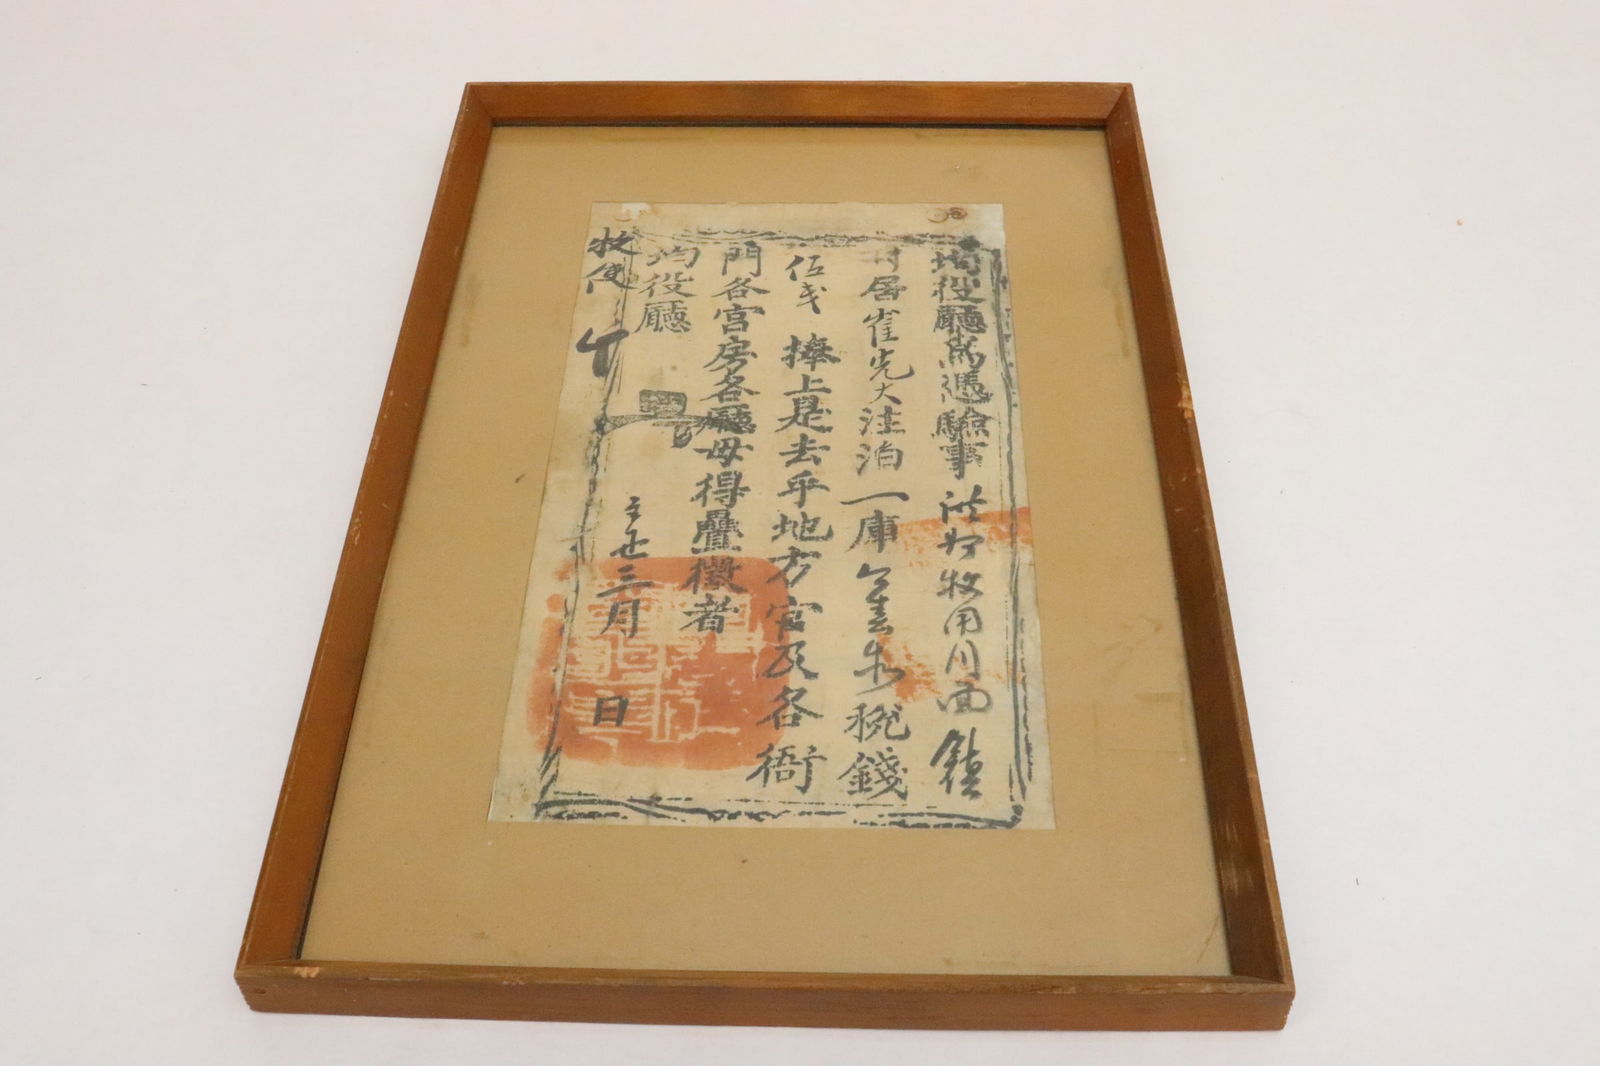 均役廳爲憑驗事 洪州牧用川面 鎮
村居崔先大注泊一庫 稅錢
伍戔 捧上是去乎地方官及各衙
門各宮房各廳毋得疊徵者
均役廳
三月 日
牧使